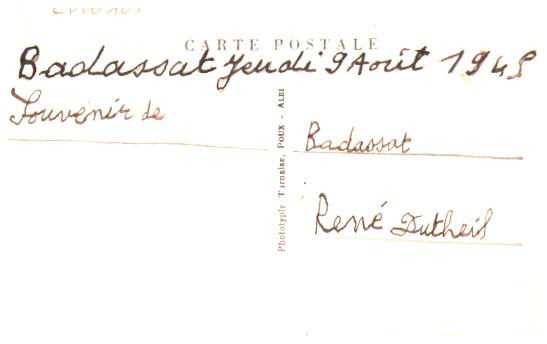 CARTE POSTALE
Badassat Jeudi 9 Août 1945
Souvenir de
Badassat
René Dutheil
Phototypie Tarnaise, POUX - ALBI